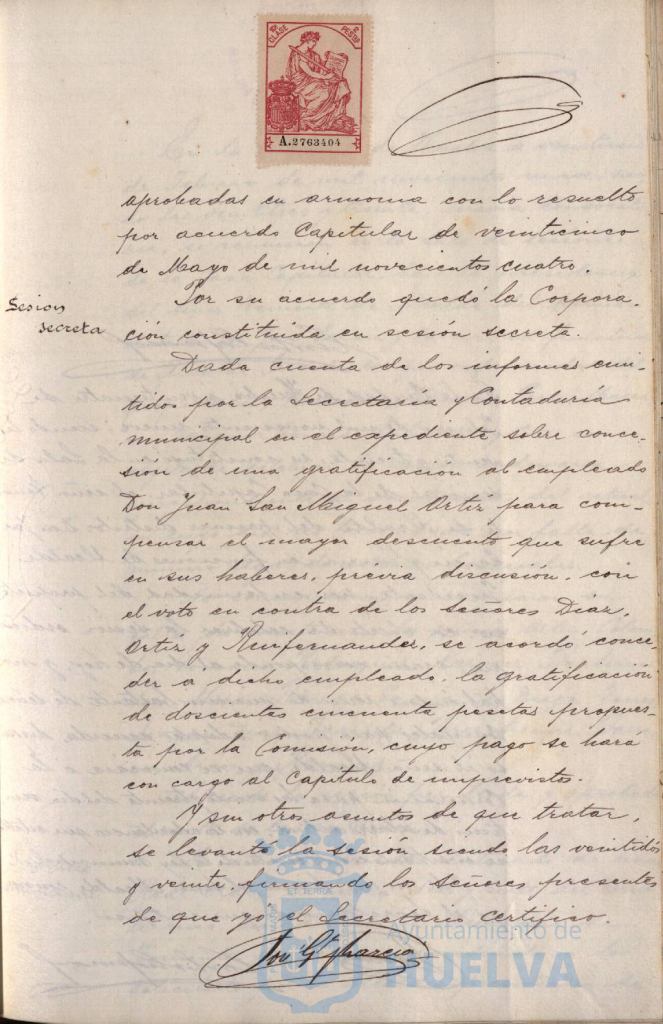 10ª CLASE
2 PESETAS
A.2763404
aprobadas en armonia con lo resuelto
por acuerdo Capitular de veinticinco
de Mayo de mil novecientos cuatro.
Sesion
secreta
Por su acuerdo quedó la Corpora-
ción constituida en sesión secreta.
Dada cuenta de los informes emi-
tidos por la Secretaría y Contaduría
municipal en el expediente sobre conce-
sión de una gratificación al empleado
Don Juan San Miguel Ortiz para com-
pensar el mayor descuento que sufre
en sus haberes, prévia discusión, con
el voto en contra de los señores Diaz,
Ortiz y Ruifernandez, se acordó conce-
der á dicho empleado la gratificación
de doscientas cincuenta pesetas propues-
ta por la Comisión, cuyo pago se hará
con cargo al Capitulo de imprevistos.
Y sin otros asuntos de que tratar,
se levantó la sesión siendo las veintidos
y veinte, firmando los señores presentes
de que yó el Secretario certifico.
Ayuntamiento de
HUELVA